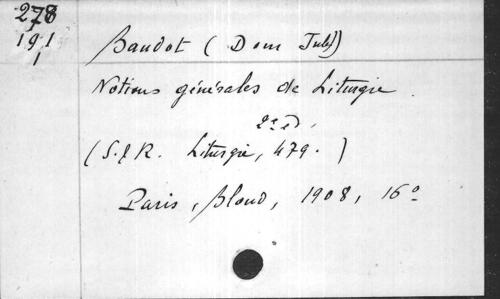 278
191
1
Baudot (Dom Jules)
Notions générales de Liturgie.
2e éd.
(S. & R. Liturgie, 479.)
Paris, Bloud, 1908, 16°